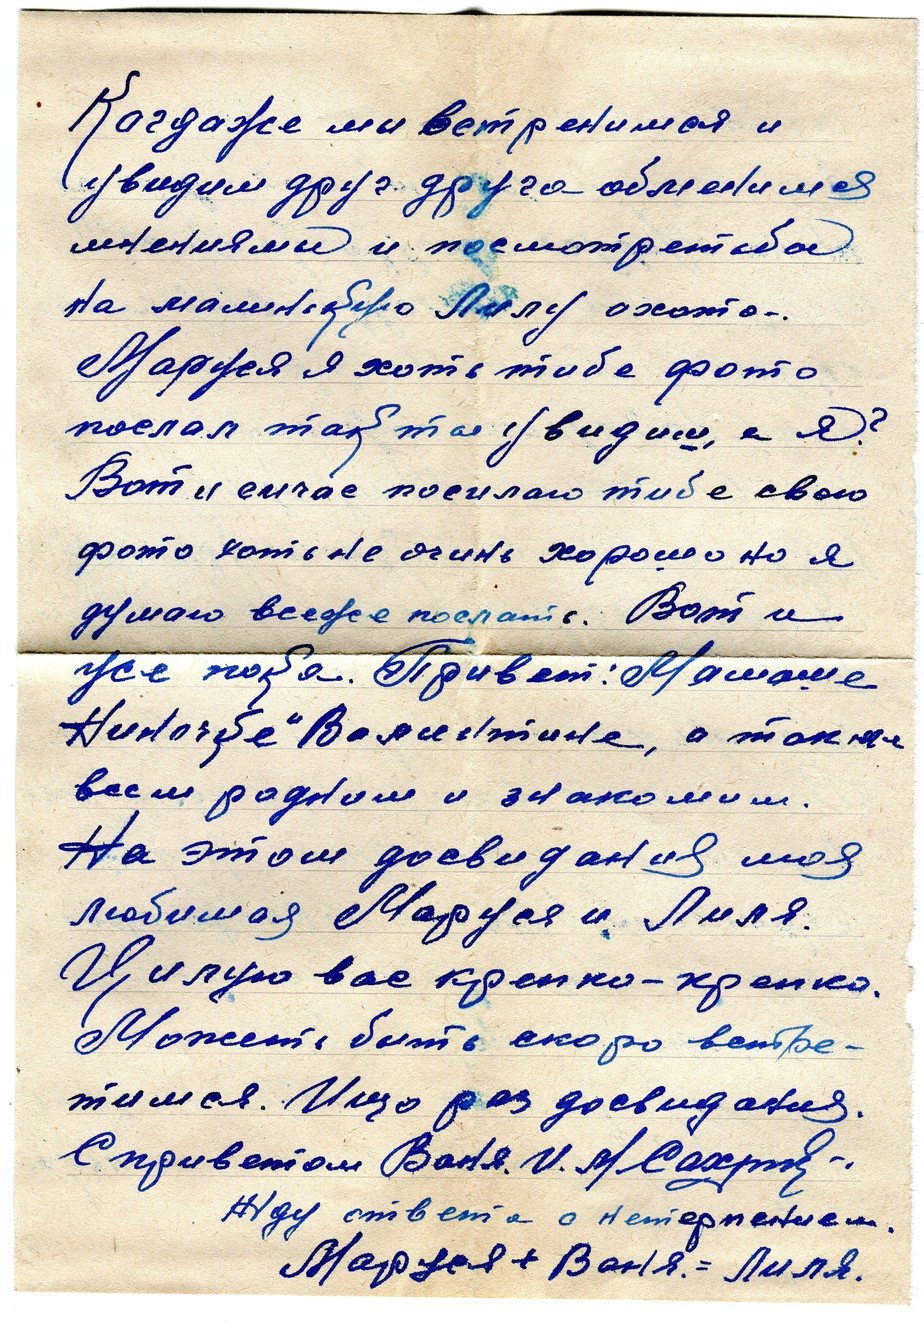 Кагдаже ми встренимся и
увидим друг друга обменимся
мнениями и посмотретьбы
на малинькую Лилу охото-.
Маруся я хоть тибе фото
послал так ты увидиш, а я?
Вот и сичас посилаю тибе свою
фото хоть не очинь хорошо но я
думаю всеже послать. Вот и
усе пока. Привет: Мамаше
Ниночке" Валинтине, а также
всем родним и знакомим.
На этом досвидания моя
любимая Маруся и Лиля.
Цилую вас крепко-крепко.
Можеть быть скоро встре-
тимся. Ищо раз досвидания.
С приветом Ваня. И. М
Жду ответа с нетерпением.
Маруся + Ваня. = Лиля.